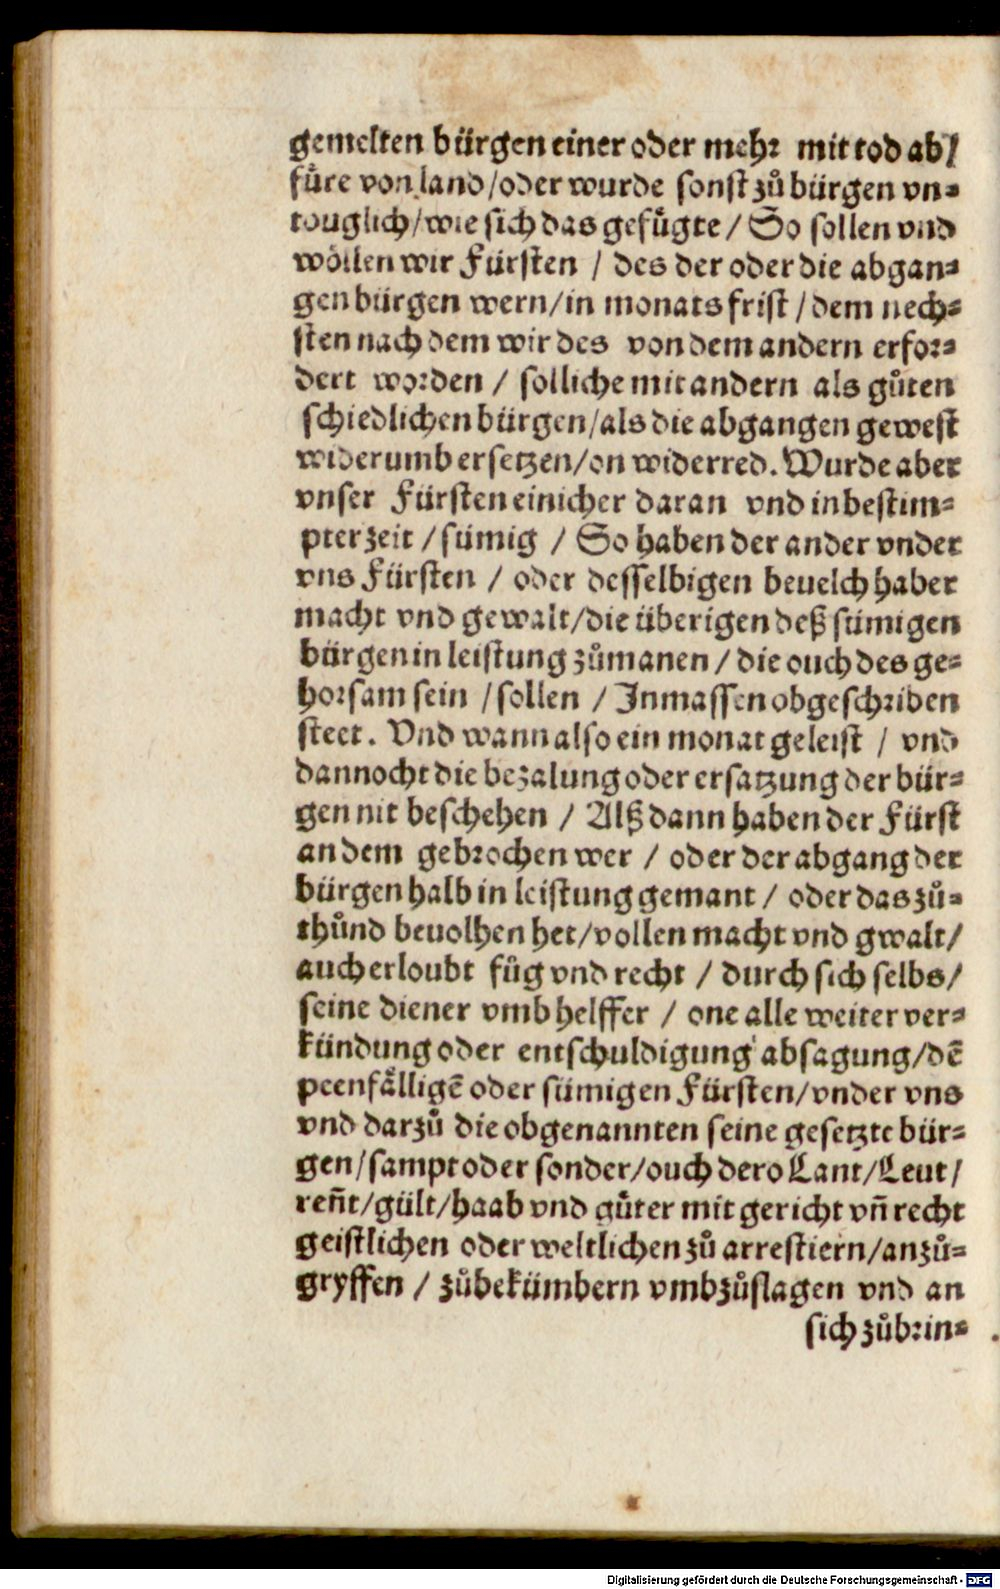 gemelten bürgen einer oder mehr mit tod ab/
fůre von land/oder wurde sonst zů bürgen vn⸗
touglich/wie sich das gefůgte / So sollen vnd
wöllen wir Fürsten / des der oder die abgan⸗
gen bürgen wern/in monats frist / dem nech⸗
sten nach dem wir des von dem andern erfor⸗
dert worden / solliche mit andern als gůten
schiedlichen bürgen/als die abgangen gewest
widerumb ersetzen/on widerred. Wurde aber
vnser Fürsten einicher daran vnd in bestim⸗
pter zeit / sümig / So haben der ander vnder
vns Fürsten / oder desselbigen beuelch haber
macht vnd gewalt/die überigen deß sümigen
bürgen in leistung zůmanen / die ouch des ge⸗
horsam sein / sollen / Inmassen obgeschriben
steet. Vnd wann also ein monat geleist / vnd
dannocht die bezalung oder ersatzung der bür⸗
gen nit beschehen / Alß dann haben der Fürst
an dem gebrochen wer / oder der abgang der
bürgen halb in leistung gemant / oder das zů⸗
thůnd beuolhen het/vollen macht vnd gwalt/
auch erloubt fůg vnd recht / durch sich selbs/
seine diener vmb helffer / one alle weiter ver⸗
kündung oder entschuldigung absagung/dē
peenfälligē oder sümigen Fürsten/vnder vns
vnd darzů die obgenannten seine gesetzte bür⸗
gen/sampt oder sonder/ouch dero Lant/Leut/
reñt/gült/haab vnd gůter mit gericht vñ recht
geistlichen oder weltlichen zů arrestiern/anzů⸗
gryffen / zůbekümbern vmbzůslagen vnd an
sich zůbrin⸗
Digitalisierung gefördert durch die Deutsche Forschungsgemeinschaft - DFG